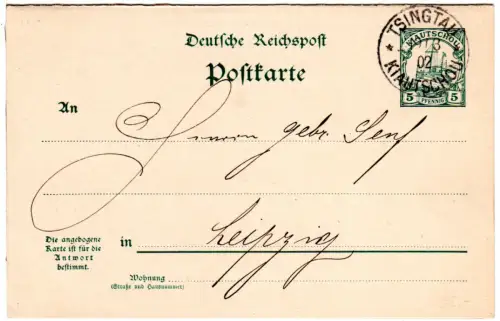 Deutsche Reichspost
Postkarte
TSINGTAU
KIAUTSCHOU
3
02
KIAUTSCHOU
5 PFENNIG 5
An
Herren Gebr. Senf
Die angebogene
Karte ist für die
Antwort
bestimmt.
in Leipzig
Wohnung
(Straße und Hausnummer)